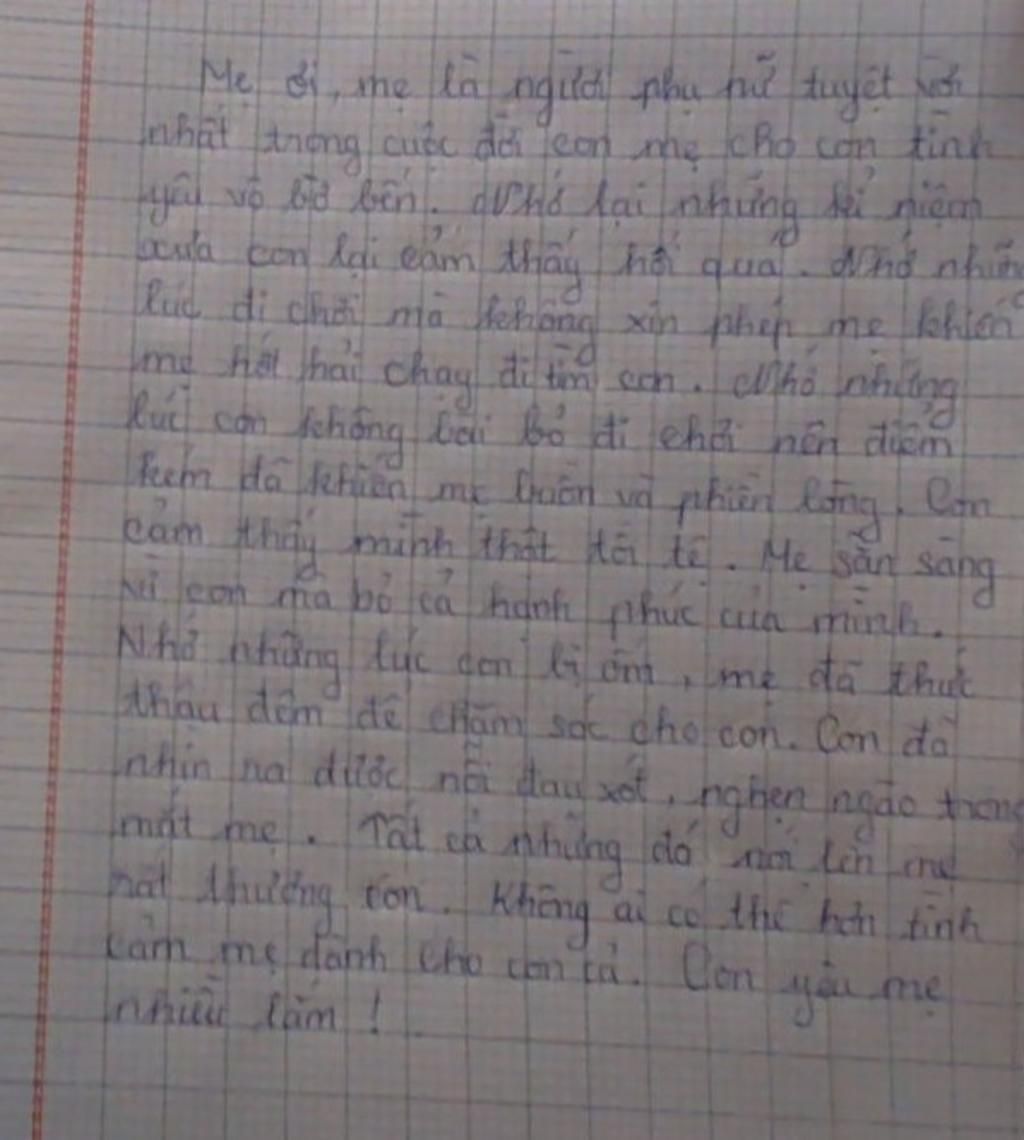 Mẹ ơi, mẹ là người phụ nữ tuyệt vời
nhất trong cuộc đời con mẹ cho con tình
yêu vô bờ bến. Nhớ lại những kỉ niệm
xưa con lại cảm thấy hối quá. Nhớ những
lúc đi chơi mà không xin phép mẹ khiến
mẹ hớt hải chạy đi tìm con. Nhớ những
lúc con không bài bỏ đi chơi nên điểm
kém đã khiến mẹ buồn và phiền lòng. Con
cảm thấy mình thật tồi tệ. Mẹ sẵn sàng
vì con mà bỏ cả hạnh phúc của mình.
Nhớ những lúc con bị ốm, mẹ đã thức
thâu đêm để chăm sóc cho con. Con đã
nhìn na được nỗi đau xót, nghẹn ngào trong
mắt mẹ. Tất cả những đó nói lên mẹ
rất thương con. Không ai có thể hơn tình
cảm mẹ dành cho con cả. Con yêu mẹ
nhiều lắm!